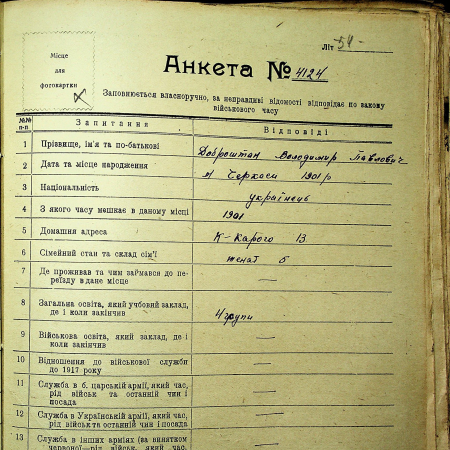 Місце
для
фотокартки
Літ 54-
Анкета № 4124
Заповнюється власноручно, за неправдиві відомості відповідає по закону
військового часу
№№
п-п.
Запитання
Відповіді
1 Прізвище, ім'я та по-батькові Доброштан Володимир Павлович
2 Дата та місце народження м Черкаси 1901 р
3 Національність українець
4 З якого часу мешкає в даному місці 1901
5 Домашня адреса К-Карого 13
6 Сімейний стан та склад сім'ї женат 5
7 Де проживав та чим займався до пе-
реїзду в дане місце —
8 Загальна освіта, який учбовий заклад,
де і коли закінчив 4 групи
9 Військова освіта, який заклад, де і
коли закінчив —
10 Відношення до військової служби
до 1917 року —
11 Служба в б. царській армії, який час,
рід військ та останній чин і
посада —
12 Служба в Українській армії, який час,
рід військ та останній чин і посада —
13 Служба в інших арміях (за винятком
червоної—рід військ, який час,